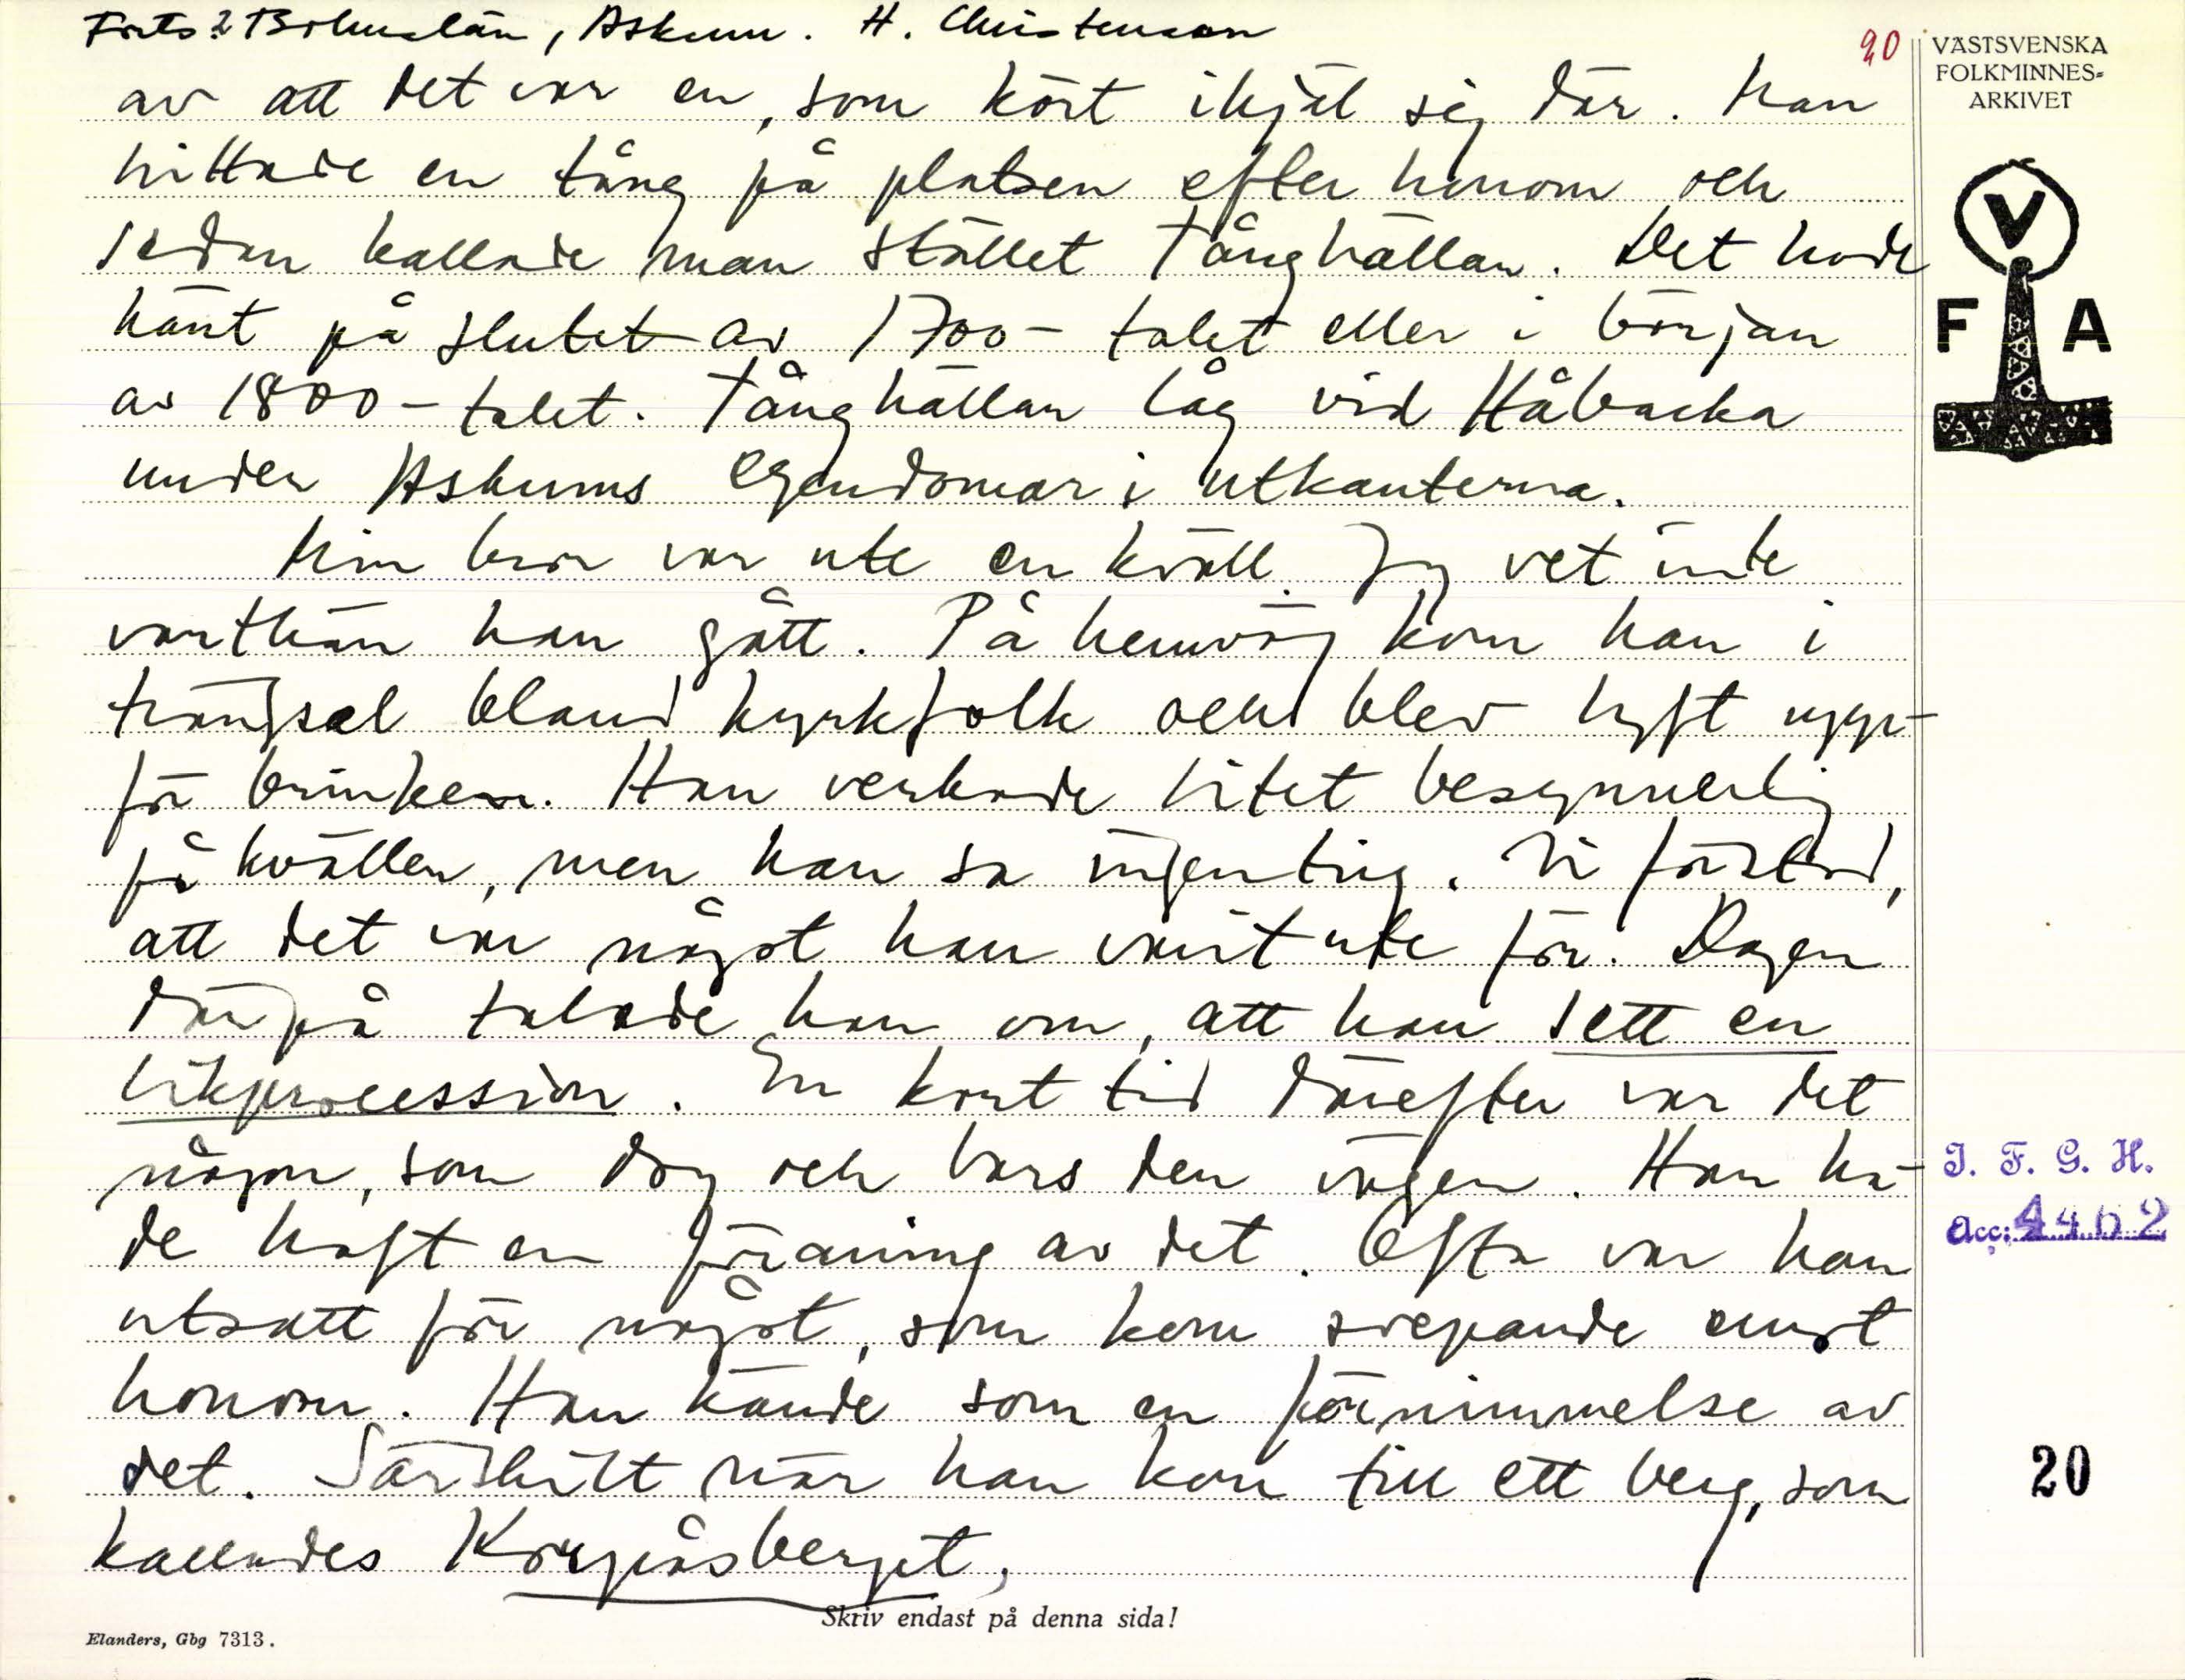 Forts. 2 Bohuslän, Askum. H. Christenson
20
VÄSTSVENSKA
FOLKMINNES-
ARKIVET
V
F A
av att det var en, som kört ihjäl sig där. Man
hittade en tång på platsen efter honom och
sedan kallade man stället Tånghällan. Det hade
hänt på slutet av 1700-talet eller i början
av 1800-talet. Tånghällan låg vid Håbacka
under Askums egendomar i utkanterna.
Min bror var ute en kväll. Jag vet inte
varthän han gått. På hemväg kom han i
trängsel bland kyrkfolk och blev lyft upp-
för brinken. Han verkade litet besynnerlig
på kvällen, men han sa ingenting. Vi förstod,
att det var något han varit ute för. Dagen
därpå talade han om, att han sett en
likprocession. En kort tid därefter var det
någon, som dog och bars den vägen. Han ha-
de haft en föraning av det. Ofta var han
utsatt för något, som kom svepande emot
honom. Han kände som en förnimmelse av
det. Särskilt när han kom till ett berg, som
kallades Korpåsberget,
I. F. G. H.
Acc: 4462
20
Skriv endast på denna sida!
Elanders, Gbg 7313.